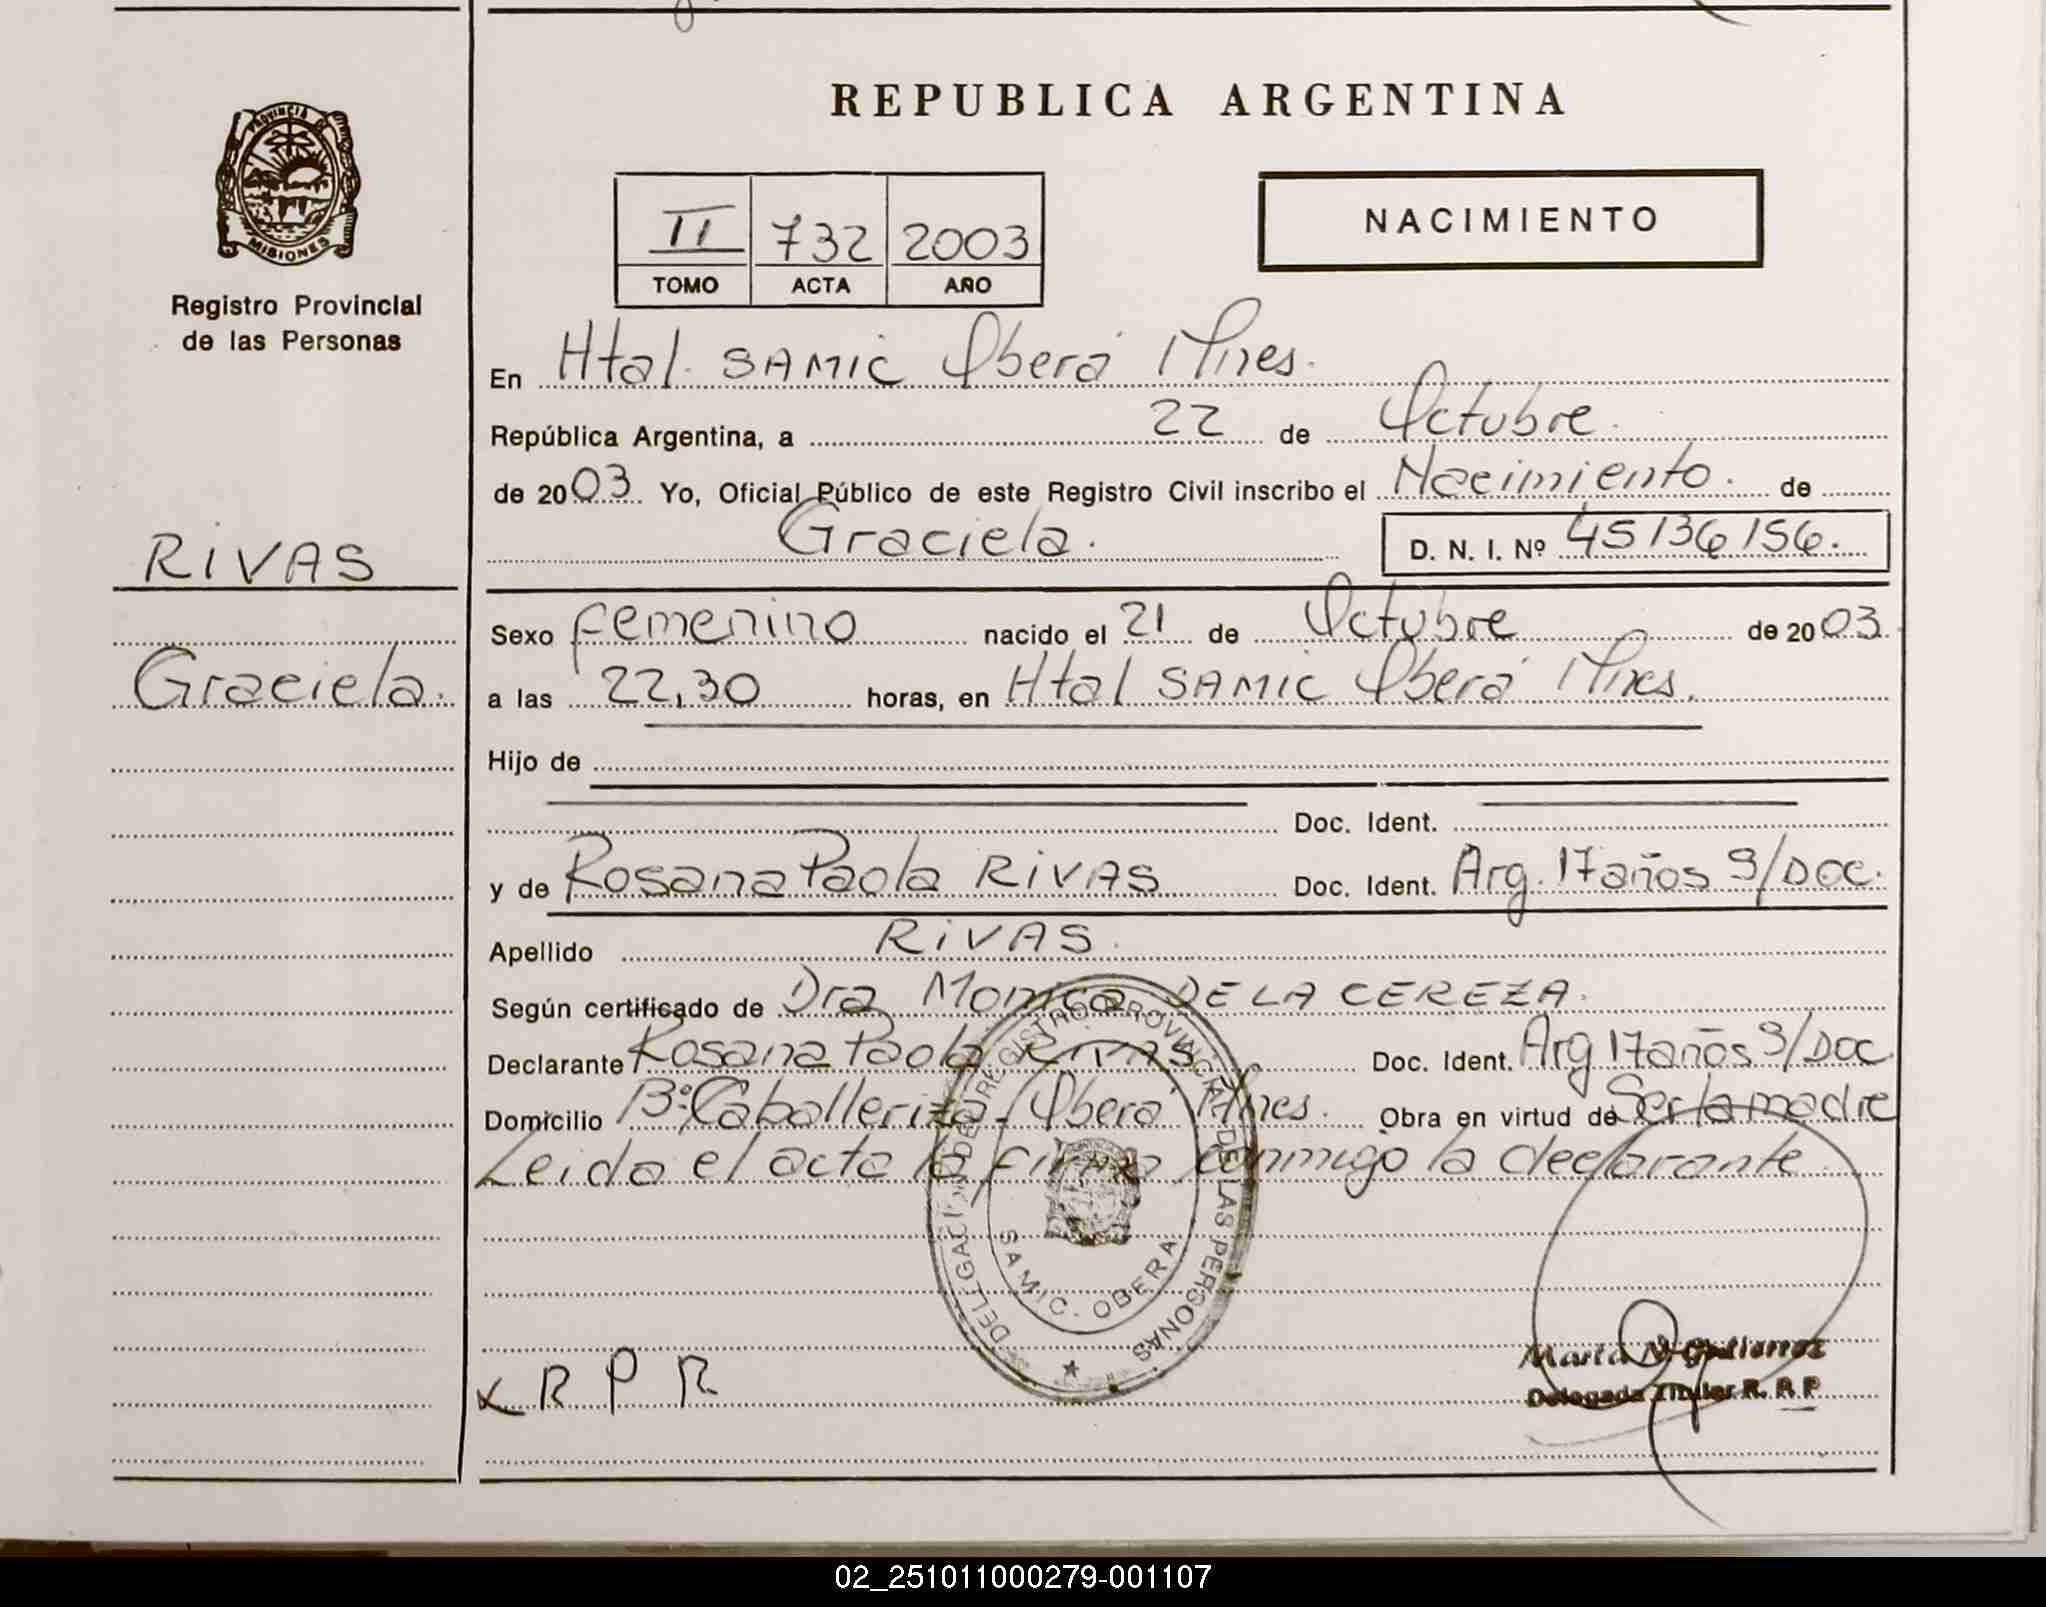 REPUBLICA ARGENTINA
PROVINCIA DE
MISIONES
Registro Provincial
de las Personas
II 732 2003
TOMO ACTA AÑO
NACIMIENTO
En Htal. SAMIC Oberá Mnes.
República Argentina, a 22 de Octubre.
de 2003 Yo, Oficial Público de este Registro Civil inscribo el Nacimiento. de
Graciela. D. N. I. Nº 45136156.
RIVAS
Graciela.
Sexo femenino nacido el 21 de Octubre de 2003.
a las 22,30 horas, en Htal SAMIC Oberá Mnes.
Hijo de
Doc. Ident.
y de Rosana Paola RIVAS Doc. Ident. Arg. 17 años S/DOC.
Apellido RIVAS.
Según certificado de Dra Monica DE LA CEREZA.
Declarante Rosana Paola RIVAS Doc. Ident. Arg 17 años S/DOC
Domicilio Bº: Caballeriza - Oberá Mnes. Obra en virtud de Ser la madre
Leida el acta la firma conmigo la declarante.
DELEGACION DEL REGISTRO PROVINCIAL DE LAS PERSONAS
SAMIC - OBERA
x R P R
Maria Gutierrez
Delegada Titular R. R. P
02_251011000279-001107